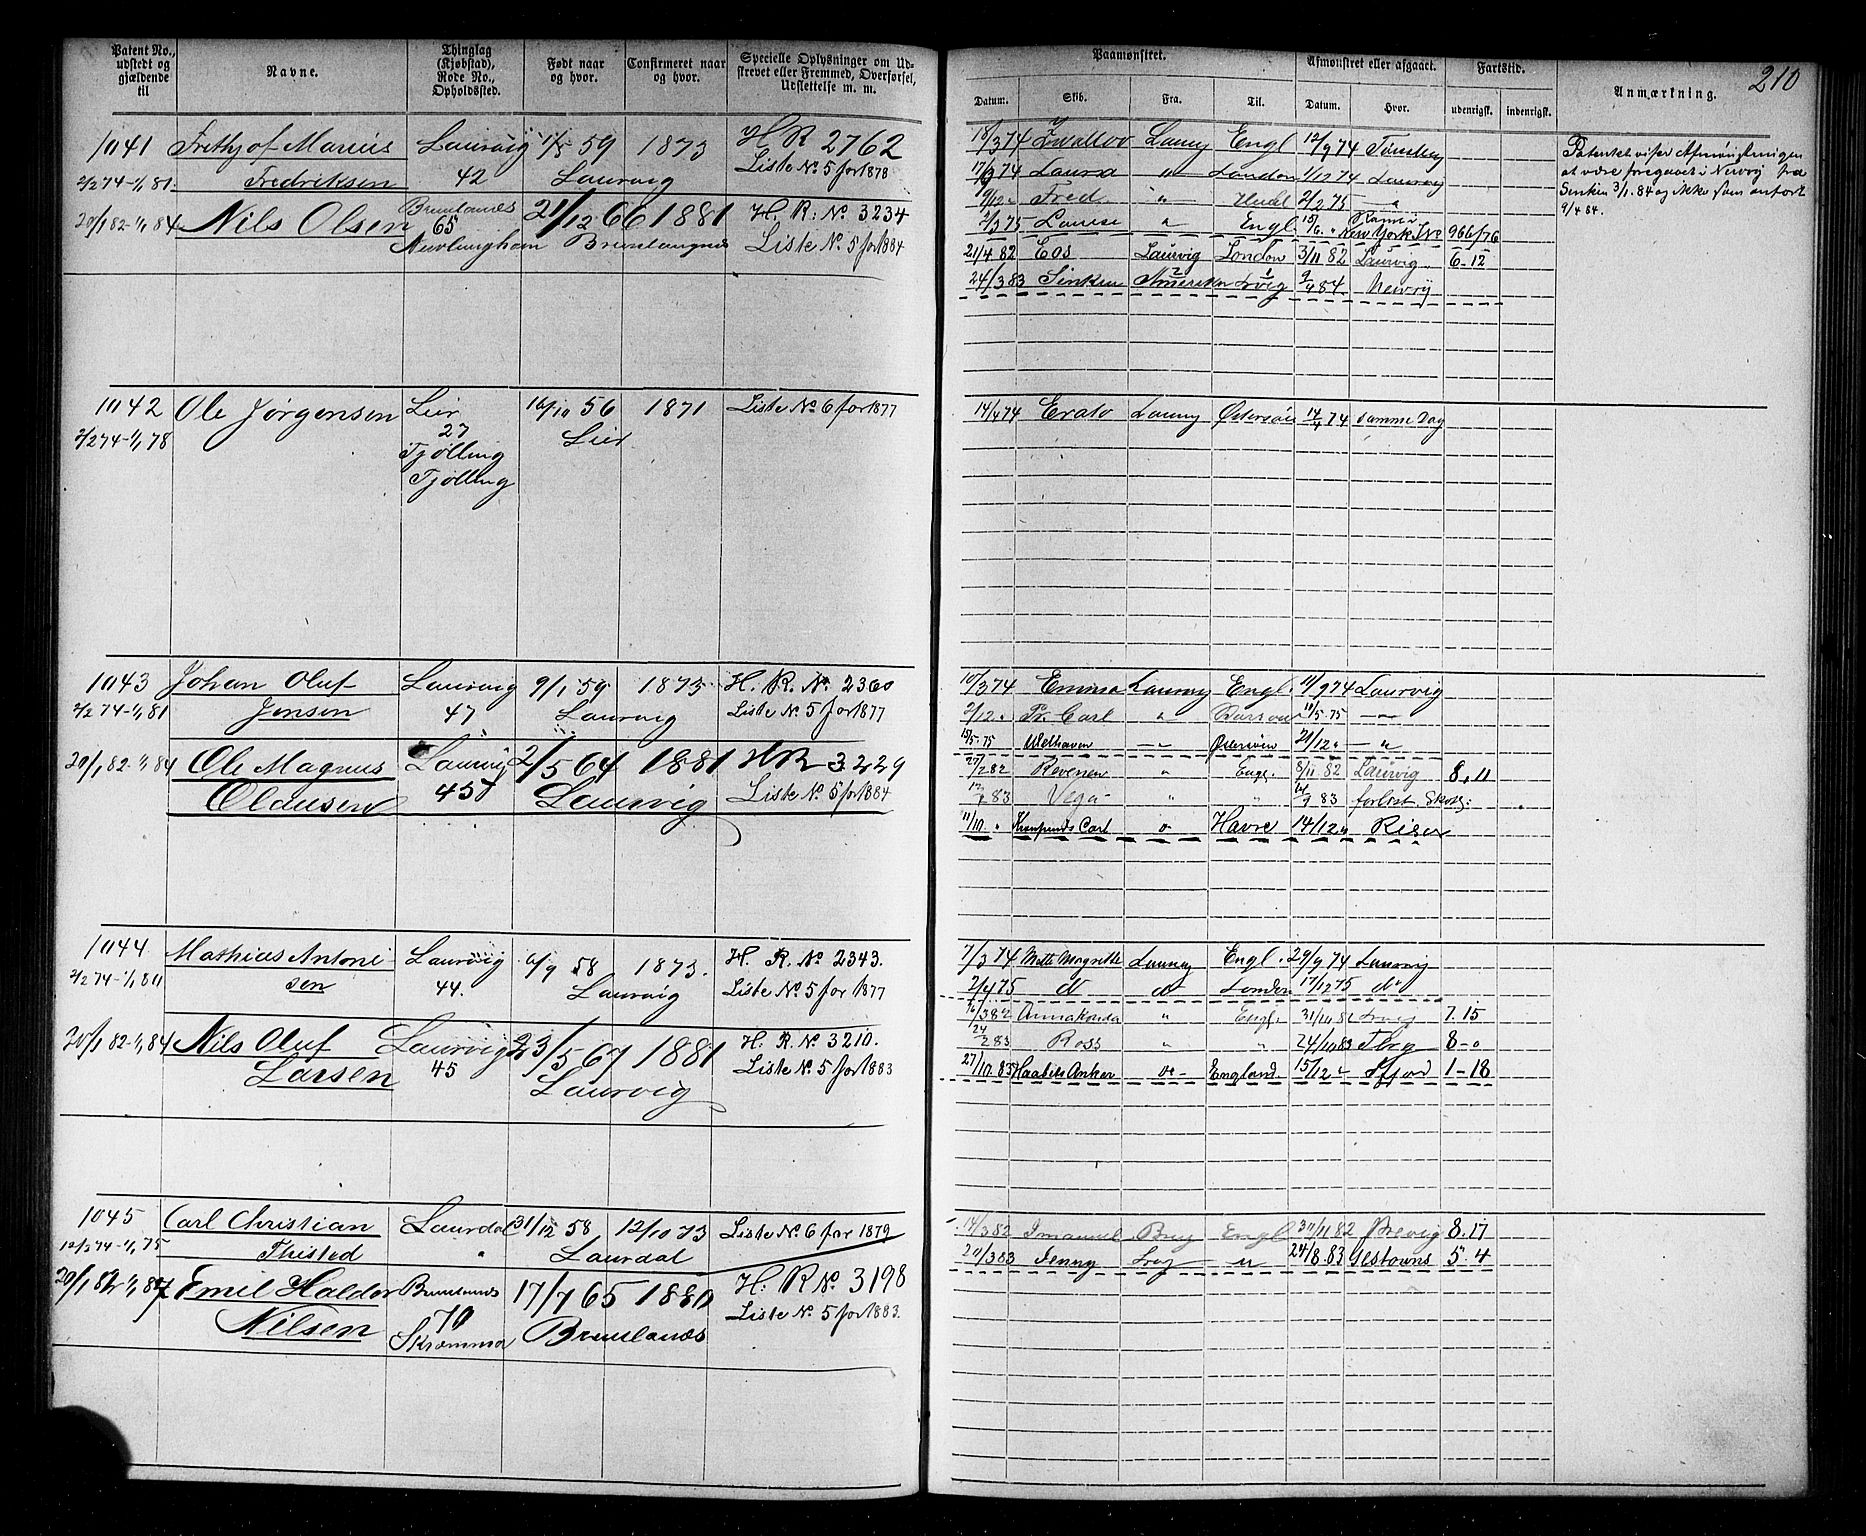 210
Patent No., udstedt og gjældende til
Navne.
Thinglag (Kjøbstad), Rode No., Opholdssted.
Født naar og hvor.
Confirmeret naar og hvor.
Specielle Oplysninger om Udskrevet eller Fremmed, Overførsel, Udslettelse m. m.
Paamønstret.
Afmønstret eller afgaaet.
Fartstid.
Anmærkning.
Datum. Skib. Fra. Til. Datum. Hvor. udenrigsk. indenrigsk.
1041 Frithjof Marius Laurvig 1/5 59 1873 H R 2762
2/2 74-1/1 81. Fredriksen 42 Laurvig Liste No 5 for 1878
20/1 82-1/1 84 Nils Olsen Brunlanæs 65 21/12 66 1881 H. R: No 3234
Nevlunghavn Brunlanæs Liste No 5 for 1884
1042 Ole Jørgensen Lier 16/10 56 1871 Liste No 6 for 1877
2/2 74-1/1 78 27 Lier
Tjølling
Tjølling
1043 Johan Oluf Laurvig 9/1 59 1873 H. R. No 2360
2/2 74-1/1 81 Jensen 47 Laurvig Liste No 5 for 1877
20/1 82-1/1 84 Ole Magnus Laurvig 2/5 64 1881 HR 3229
Olausen 45 Laurvig Liste No 5 for 1884
1044 Mathias Antoni Laurvig 6/9 58 1873. H. R. No 2343.
sen 44. Laurvig Liste No 5 for 1877
20/1 82-1/1 84 Nils Oluf Laurvig 23/5 67 1881 H. R. No 3210.
Larsen 45 Laurvig Liste No 5 for 1883
1045 Carl Christian Laurdal 31/12 58 12/10 73 Liste No 6 for 1879
12/3 74-1/1 75 Thisted " Laurdal
20/1 82-1/1 87 Emil Haldor Brunlanæs 17/7 65 1880 H: R No. 3198
Nilsen 70 Brunlanæs Liste No 5 for 1883.
18/3 74 Laurv Engl 12/9 74 Tønsbg
17/9 74 Laura " London 1/12 74 Laurvig
Fred " 2/2 75 "
2/3 75 Louise " Engl 15/6 " New York
21/4 82 Eos Laurvig London 3/11 82 Laurvig 6-12
24/3 83 Sirken Amerika Lrvig 9/4 84. Newry
Patentet viser Afmønstringen
at være foregaaet i Newry fra
Sirken 3/1. 84 og ikke som anført
9/4 84.
14/4 74 Erato Laurv Østersøen 14/4 74 samme Dag
10/3 74 Emma Laurv Engl. 11/9 74 Laurvig
2/12 " Pr. Carl " 10/5 75
15/5 75 Welhaven " Østersøen 21/12 "
Revenen " Engl 8/11 82 Laurvig 8.11
Vega " " 83 forlist
11/10 " Kronprinds Carl " Havre 14/12 " Risør
7/3 74 Mette Margrethe Laurv Engl. 29/9 74 Laurvig
2/4 75 do do London 17/12 75 do
Annakonda " Engl. 31/10 82 Lrvig 7.15
24/2 83 Ross " " 24/10 83 Tbg 8-"
27/10 83 Haabets Anker " England. 15/12 " 1-18
14/3 82 Imanuel Brvig Engl 30/11 82 Brevig 8.17
20/3 83 Jenny Lrvig " 24/8. 83 5.4